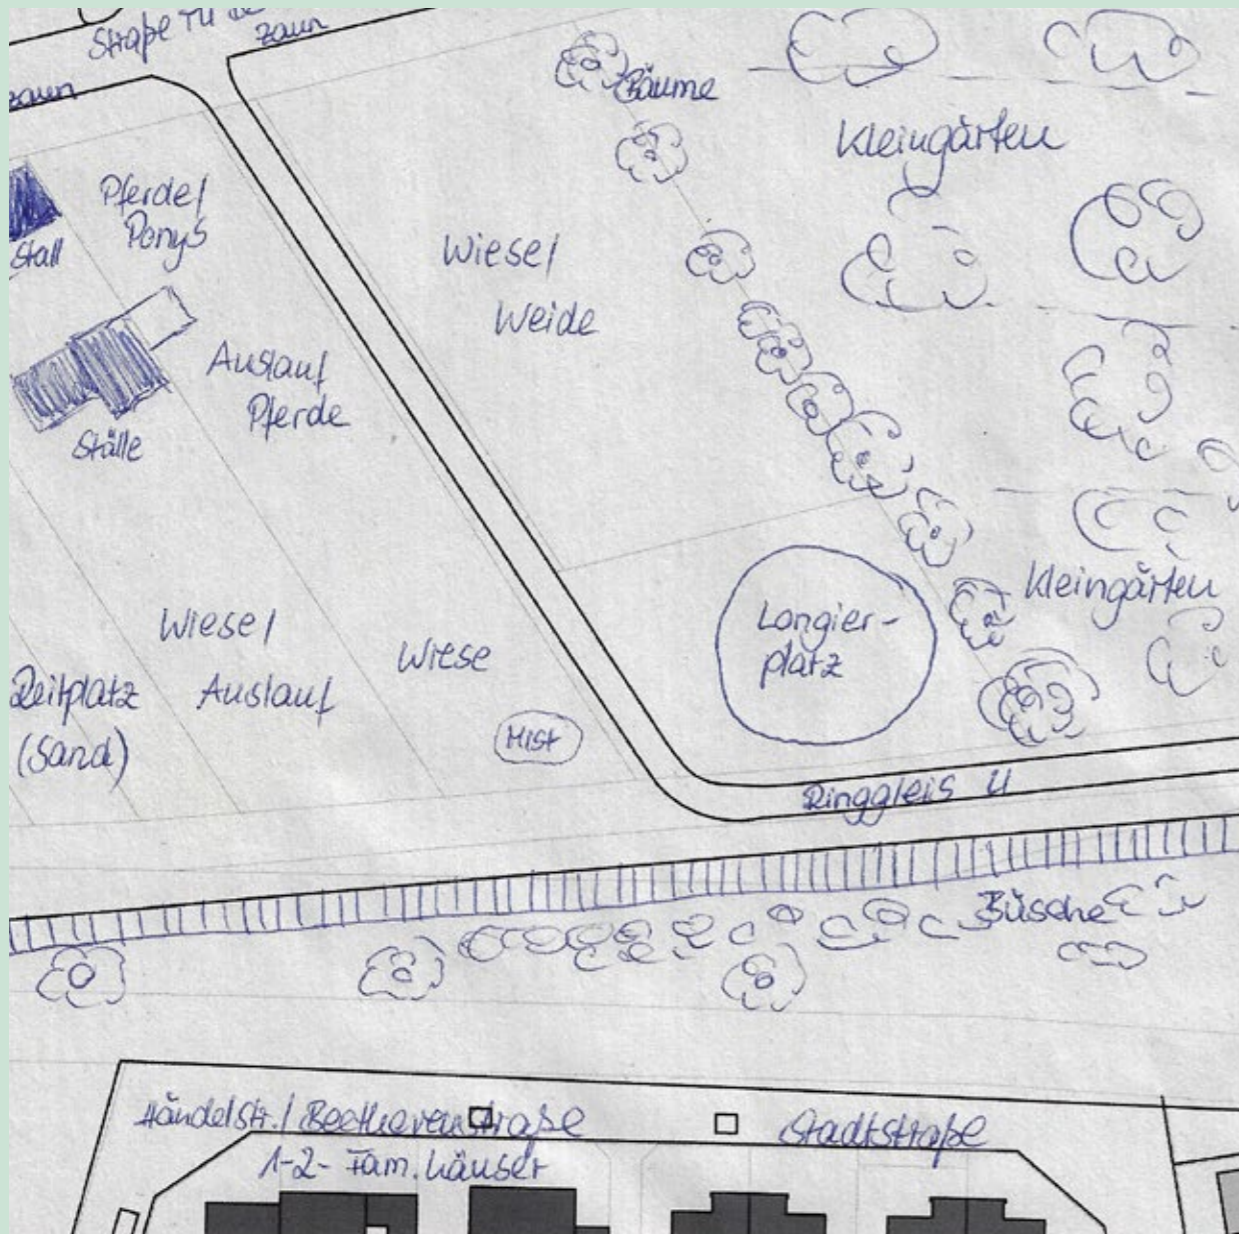 Straße
zaun
zaun
Bäume
Kleingärten
Pferde/
Ponys
Stall
Wiese/
Weide
Auslauf
Pferde
Ställe
Kleingärten
Longier-
platz
Wiese/
Auslauf
Wiese
Reitplatz
(Sand)
Mist
Ringgleis
Büsche
Händelstr./ Beethovenstraße
Stadtstraße
1-2- Fam. häuser